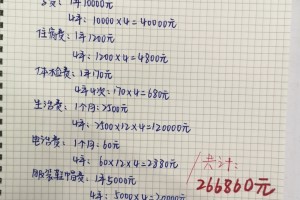 费:1年10000元
4年:10000×4=40000元
住宿费:1年1200元
4年:1200×4=4800元
体检费:1年170元
4年4次:170×4=680元
生活费:1个月:2500元
4年:2500×12×4=120000元
电话费:1个月:60元
4年:60×12×4=2880元
服装鞋帽费:1年5000元
4年:5000×4=20000元
共计:
266860元